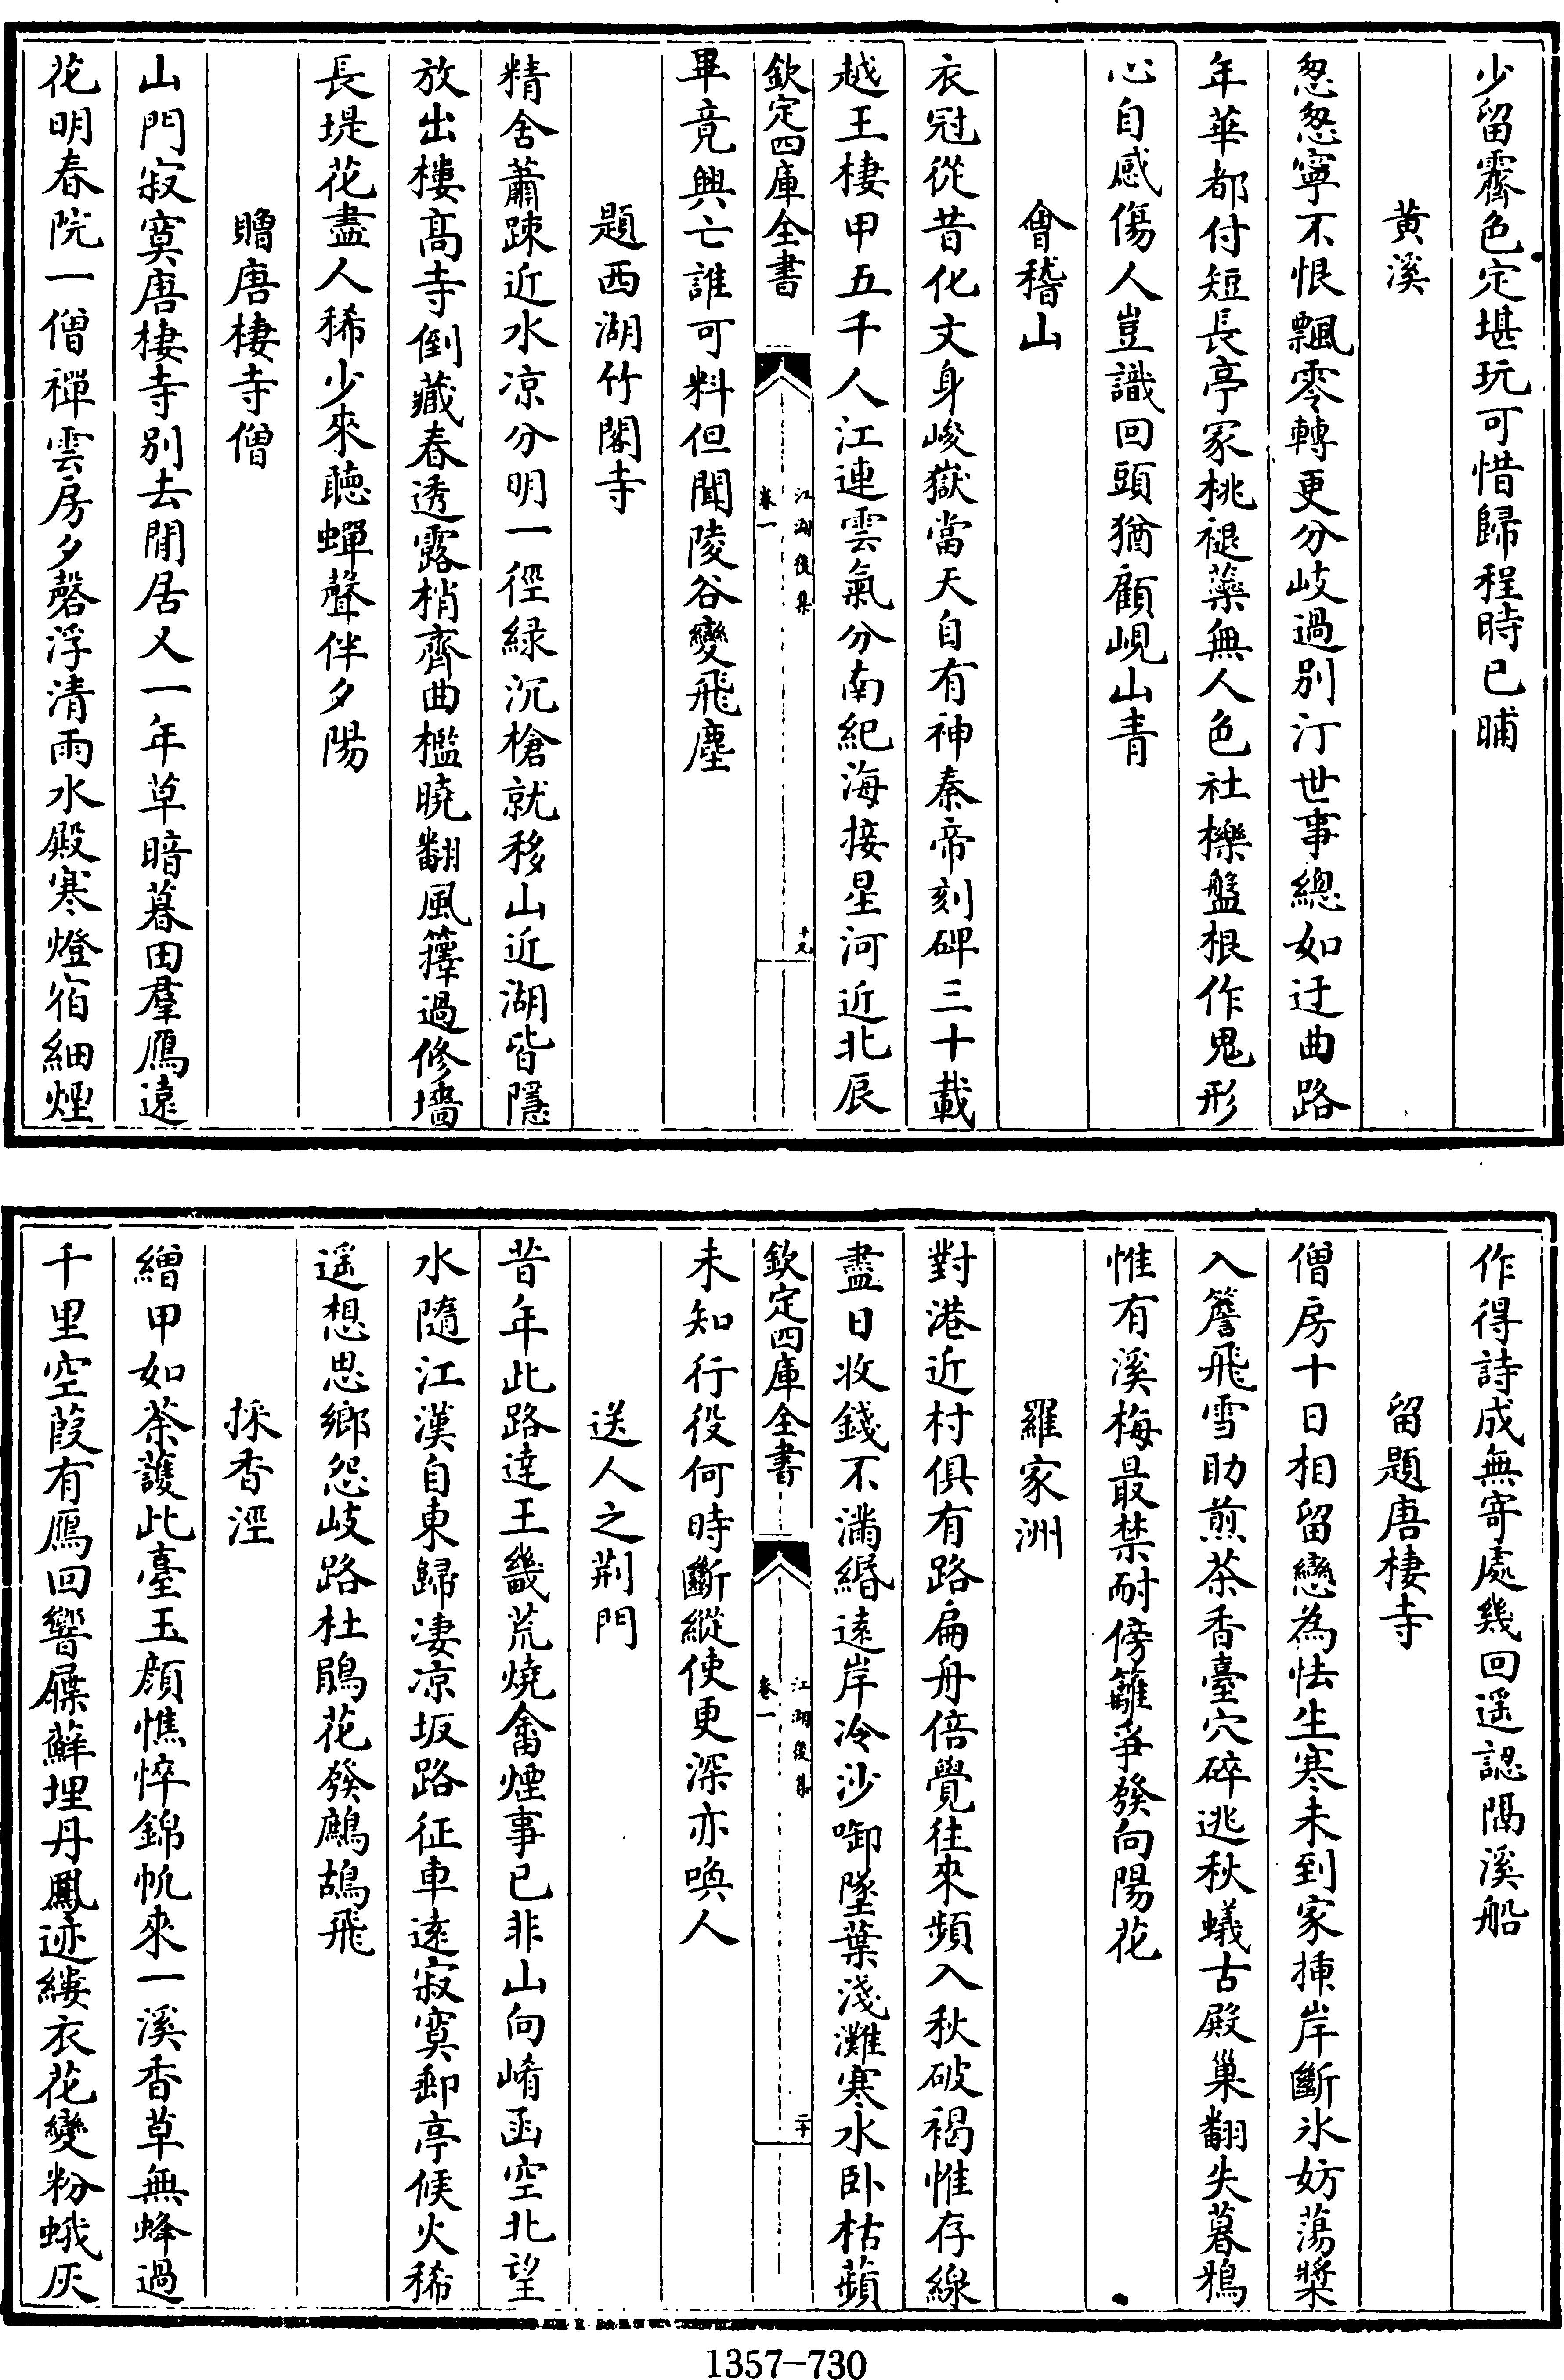 少留霽色定堪玩可惜歸程時已晡
黄溪
怱怱寧不恨飄零轉更分岐過別汀世事總如迂曲路
年華都付短長亭冢桃褪藥無人色社櫟盤根作鬼形
心自感傷人豈識回頭猶顧峴山青
會稽山
衣冠從昔化文身峻嶽當天自有神秦帝刻碑三十載
越王棲甲五千人江連雲氣分南紀海接星河近北辰
欽定四庫全書
江湖後集
卷一
十九
畢竟興亡誰可料但聞陵谷變飛塵
題西湖竹閣寺
精舍蕭踈近水凉分明一徑緑沉槍就移山近湖皆隱
放出樓髙寺倒藏春透露梢齊曲檻曉翻風籜過修墻
長堤花盡人稀少來聴蟬聲伴夕陽
贈唐棲寺僧
山門寂寞唐棲寺别去閒居又一年草暗暮田羣鴈逺
花明春院一僧禪雲房夕磬浮清雨水殿寒燈宿細煙
作得詩成無寄處幾回遥認隔溪船
留題唐棲寺
僧房十日相留戀為怯生寒未到家揷岸斷氷妨蕩槳
入簷飛雪助煎茶香臺穴碎逃秋蟻古殿巢翻失暮鴉
惟有溪梅最禁耐傍籬爭發向陽花
羅家洲
對港近村俱有路扁舟倍覺往來頻入秋破褐惟存線
盡日收錢不滿緡逺岸冷沙啣墜葉淺灘寒水卧枯蘋
欽定四庫全書
江湖後集
卷一
二十
未知行役何時斷縱使更深亦喚人
送人之荆門
昔年此路達王畿荒燒畬煙事已非山向崤函空北望
水隨江漢自東歸凄凉坂路征車逺寂寞郵亭候火稀
遥想思鄉怨岐路杜鵑花發鷓鴣飛
採香涇
繒甲如荼護此臺玉顔憔悴錦帆來一溪香草無蜂過
千里空葭有鴈回響屧蘚埋丹鳳迹縷衣花變粉蛾灰
1357-730